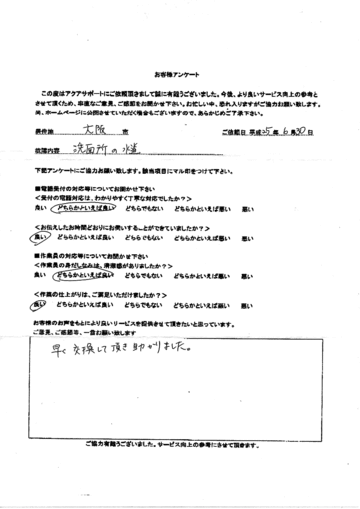 お客様アンケート
この度はアクアサポートにご依頼頂きまして誠に有難うございました。今後、より良いサービス向上の参考と
させて頂くため、率直なご意見、ご感想をお聞かせ下さい。お忙しい中、恐れ入りますがご協力お願い致します。
尚、ホームページに公開させていただく場合もございますので、あらかじめご了承下さい。
大阪 市 ご依頼日 平成25年6月30日
故障内容 洗面所の水道
下記アンケートにご協力お願い致します。該当項目にマル印をつけて下さい。
■電話受付の対応等についてお聞かせ下さい
<受付の電話対応は、わかりやすく丁寧な対応でしたか?>
良い どちらかといえば良い どちらでもない どちらかといえば悪い 悪い
<お伝えしたお時間どおりにお伺いすることができていましたか?>
良い どちらかといえば良い どちらでもない どちらかといえば悪い 悪い
■作業員の対応等についてお聞かせ下さい
<作業員の身だしなみは、清潔感がありましたか?>
良い どちらかといえば良い どちらでもない どちらかといえば悪い 悪い
<作業の仕上がりは、ご満足いただけましたか?>
良い どちらかといえば良い どちらでもない どちらかといえば悪い 悪い
お客様のお声をもとにより良いサービスを提供させて頂きたいと思っています。
ご意見、ご感想等、一言お願い致します
早く交換して頂き助かりました。
ご協力有難うございました。サービス向上の参考にさせて頂きます。